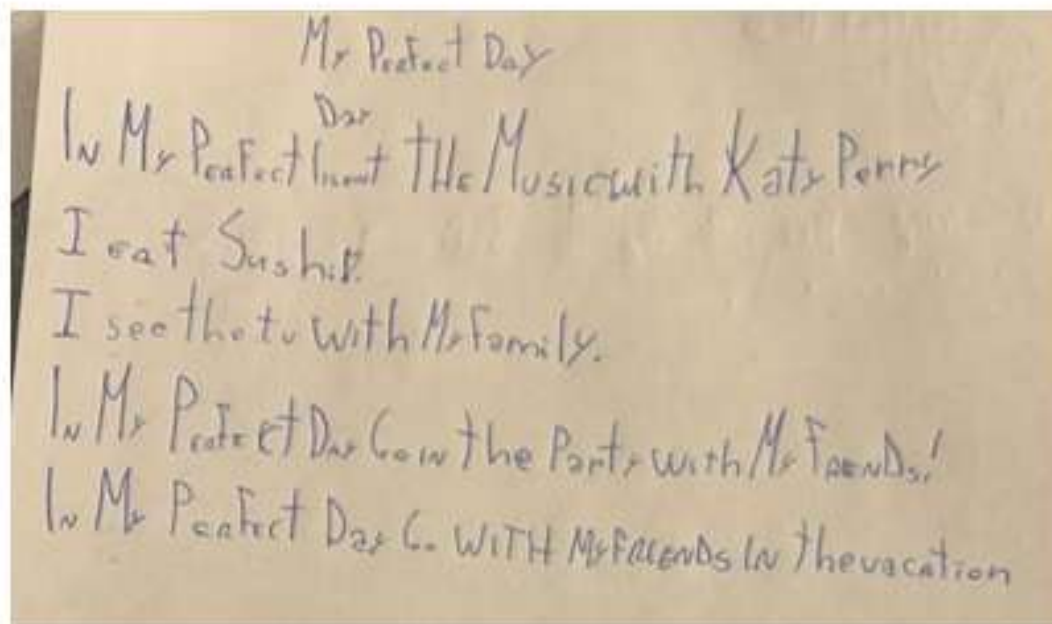 My Perfect Day
Day
In My Perfect THe Music with Katy Perry
I eat Sushi.
I see the tv with My Family.
In My Perfect Day Go in the Party with My FRENDs!
In My Perfect Day Go WITH My FRIENDS IN the vacation